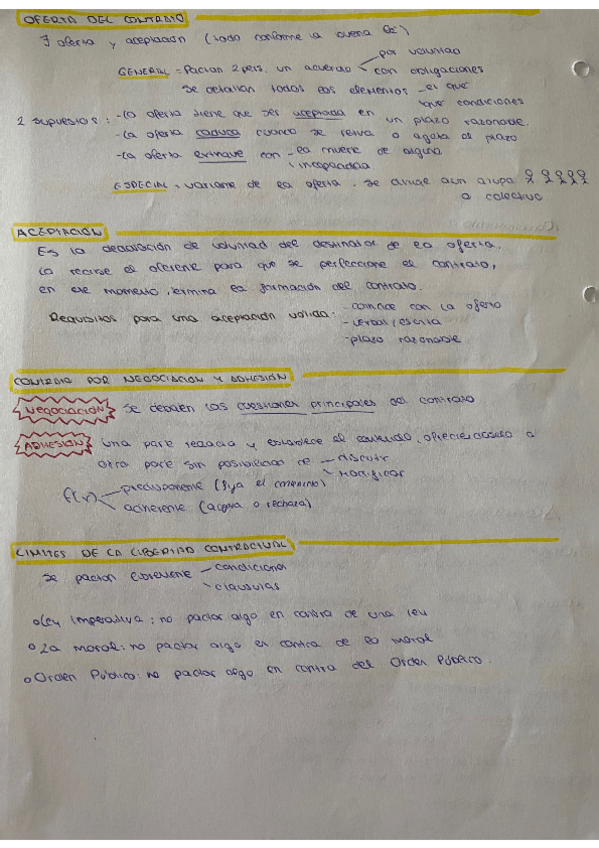 OFERTA DEL CONTRATO
oferta y aceptación (todo conforme la buena fe)
GENERAL = Pactan 2 pers. un acuerdo - por voluntad
- con obligaciones
Se detallan todos los elementos - el que
- que condiciones
2 supuestos: - La oferta tiene que ser aceptada en un plazo razonable.
- La oferta caduca cuando se retira o agota el plazo
- La oferta extingue con - la muerte de alguno
- incapacidad
ESPECIAL = variante de la oferta. Se dirige a un grupo
o colectivo
ACEPTACIÓN
Es la declaración de voluntad del destinatar de la oferta.
La recibe el oferente para que se perfeccione el contrato,
en ese momento, termina la formación del contrato.
Requisitos para una aceptación valida: - coincide con la oferta
- verbal / escrita
- plazo razonable
CONTRATO POR NEGOCIACION Y ADHESIÓN
NEGOCIACION Se debaten las cuestiones principales del contrato
ADHESION Una parte redacta y establece el contenido, ofreciendoselo a
otra parte sin posibilidad de - discutir
- modificar
- predisponente (fija el contenido)
- adherente (acepta o rechaza)
LIMITES DE LA LIBERTAD CONTRACTUAL
Se pactan libremente - condiciones
- clausulas
o Ley Imperativa: no pactar algo en contra de una ley
o La moral: no pactar algo en contra de la moral
o Orden Público: no pactar algo en contra del Orden Público.